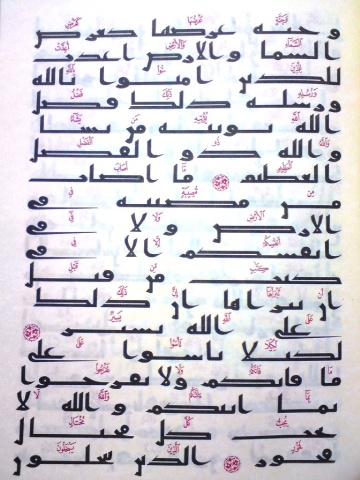 و جنه عرضها كعرض
السما و الارض اعدت
للذين امنوا بالله
ورسله ذلك فضل
الله يوتيه من يشا
والله ذو الفضل
العظيم ما اصاب
من مصيبه في
الارض و لا في
انفسكم الا في
كتب من قبل
ان نبراها ان ذلك
على الله يسير
لكيلا تاسوا على
ما فاتكم ولا تفرحوا
بما اتيكم و الله لا
يحب كل مختال
فخور الذين يبخلون